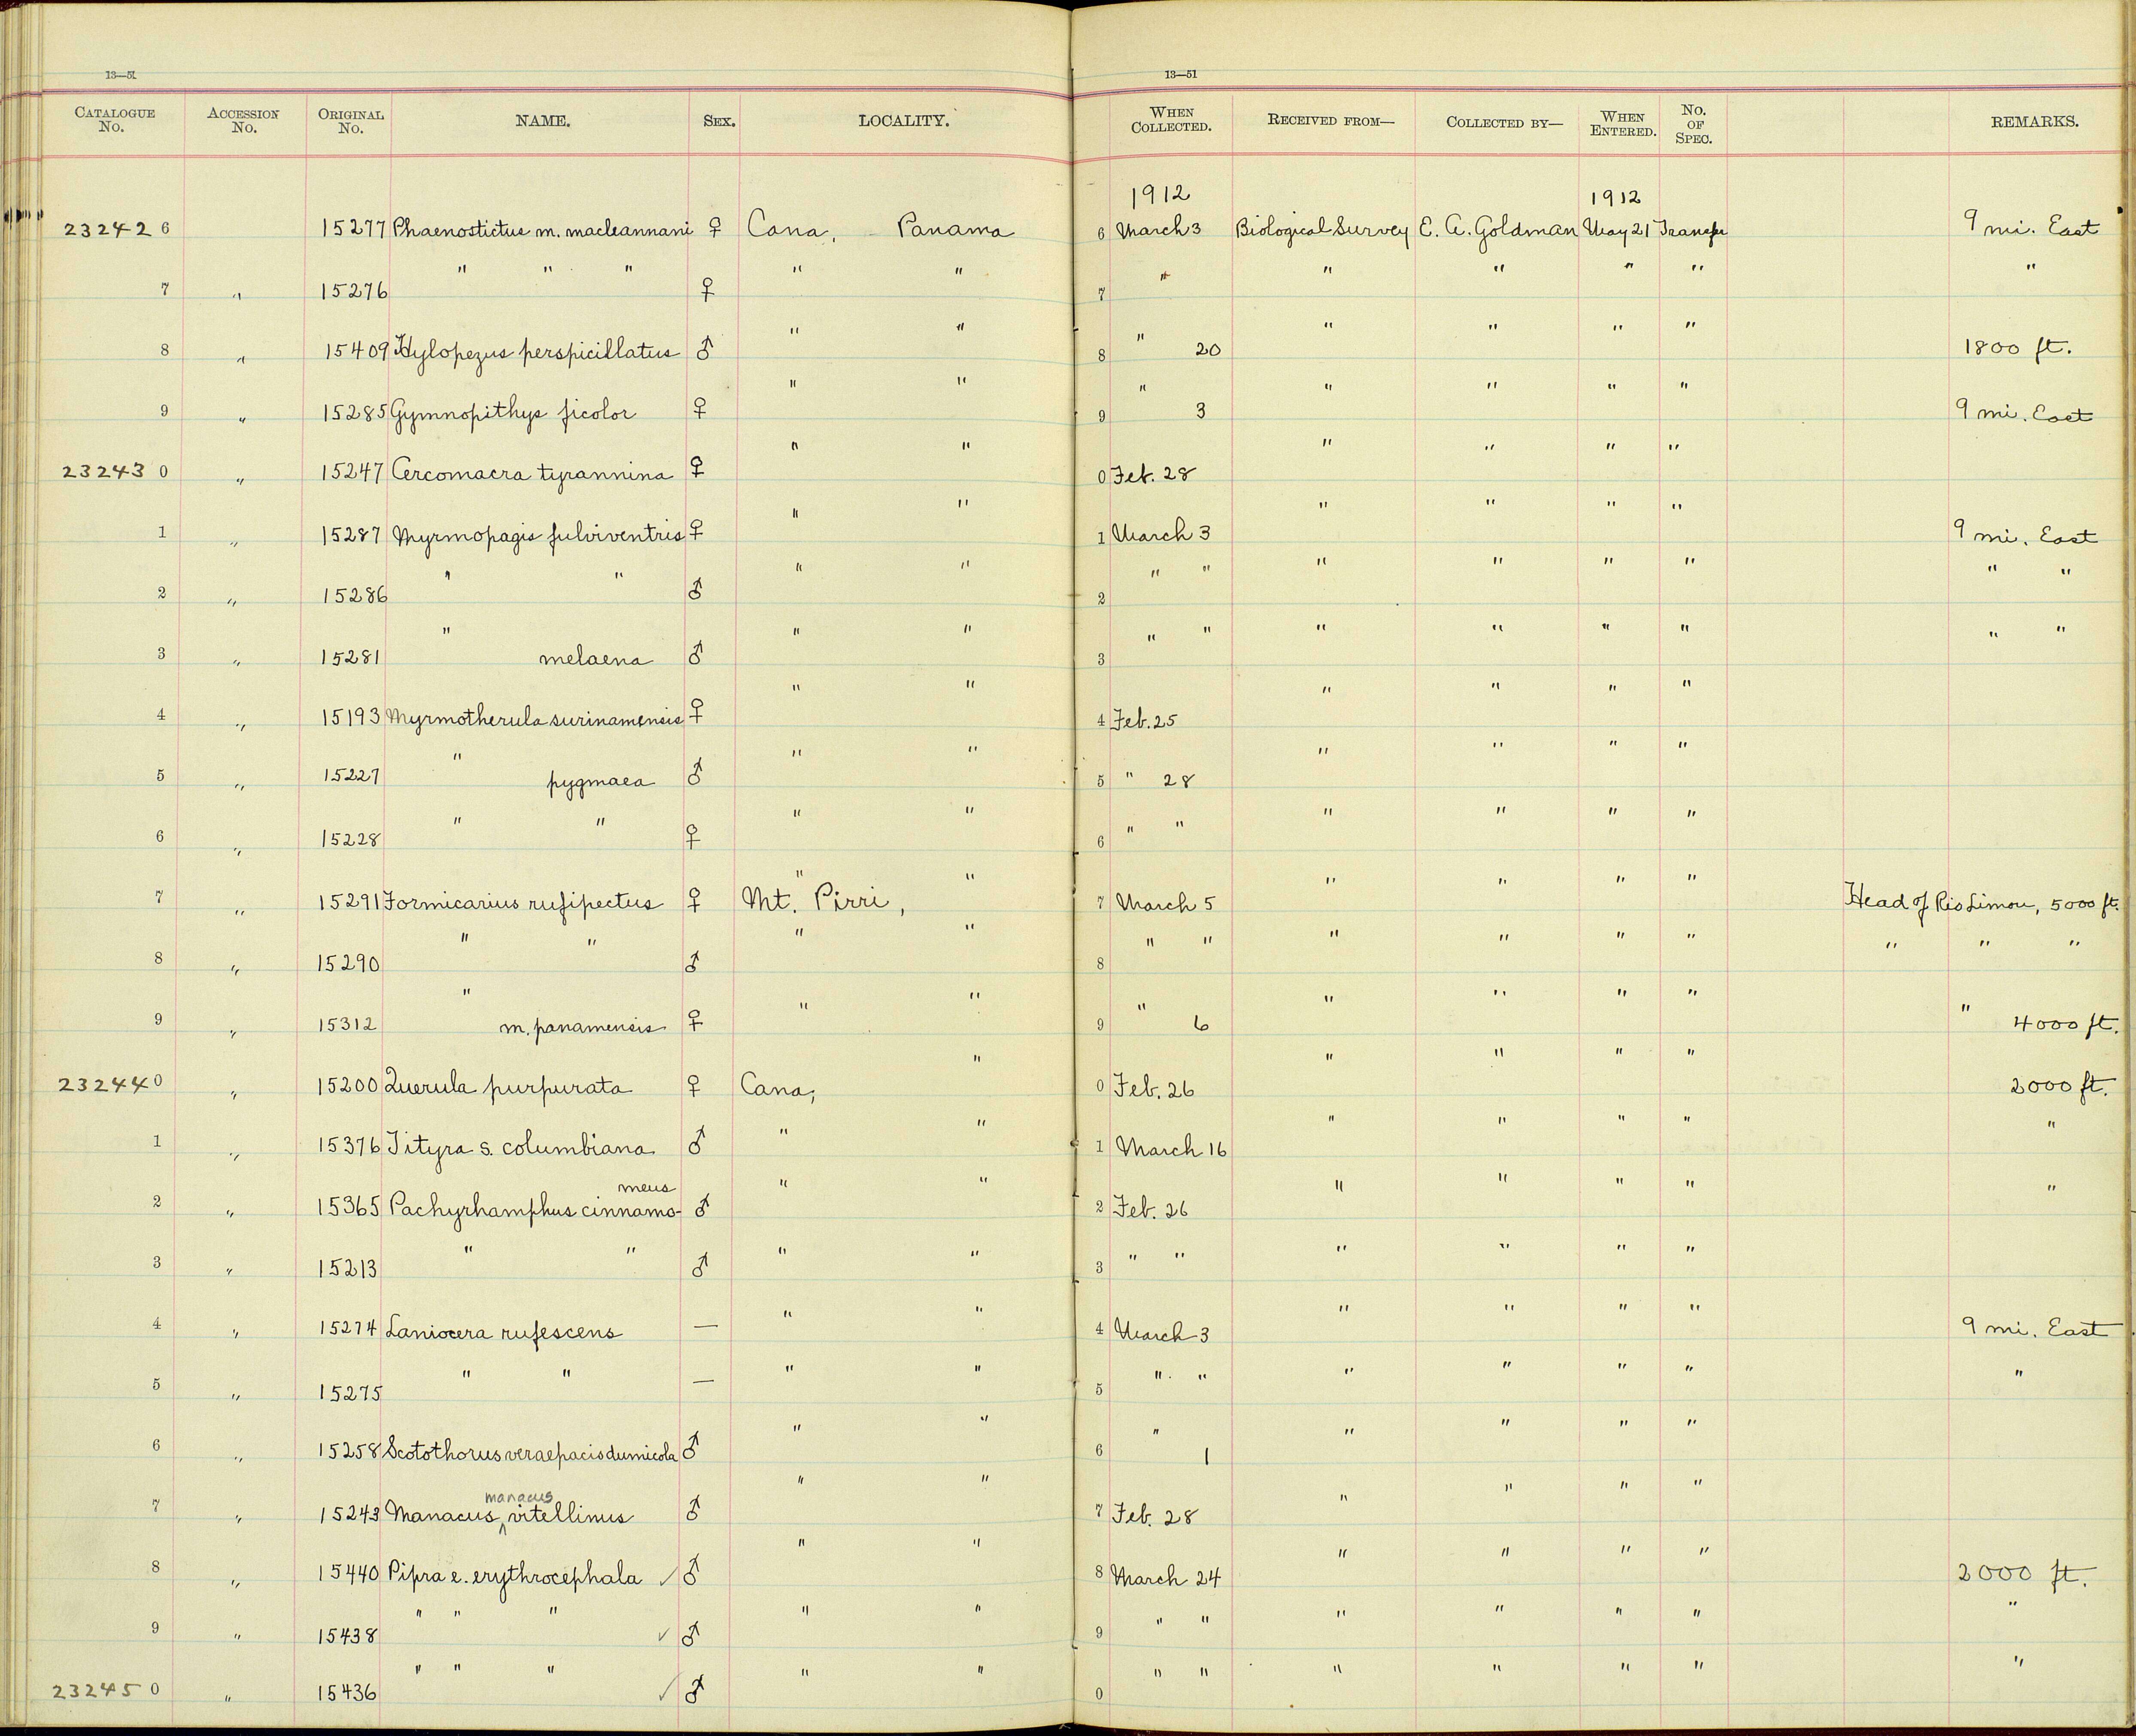 13—51 13—51
CATALOGUE No. ACCESSION No. ORIGINAL No. NAME. SEX. LOCALITY. WHEN COLLECTED. RECEIVED FROM— COLLECTED BY— WHEN ENTERED. No. OF SPEC. REMARKS.
1912 1912
232426 15277 Phaenostictus m. macleannani ♀ Cana, Panama 6 March 3 Biological Survey E. A. Goldman May 21 Transfer 9 mi. East
7 " 15276 " " " ♀ " " 7 " " " " " "
8 " 15409 Hylopezus perspicillatus ♂ " " 8 " 20 " " " " 1800 ft.
9 " 15285 Gymnopithys ficolor ♀ " " 9 " 3 " " " " 9 mi. East
232430 " 15247 Cercomacra tyrannina ♀ " " 0 Feb. 28 " " " "
1 " 15287 Myrmopagis fulviventris ♀ " " 1 March 3 " " " " 9 mi. East
2 " 15286 " " ♂ " " 2 " " " " " " " "
3 " 15281 " melaena ♂ " " 3 " " " " " " " "
4 " 15193 Myrmotherula surinamensis ♀ " " 4 Feb. 25 " " " "
5 " 15227 " pygmaea ♂ " " 5 " 28 " " " "
6 " 15228 " " ♀ " " 6 " " " " " "
7 " 15291 Formicarius rufipectus ♀ Mt. Pirri, " " 7 March 5 " " " " Head of Rio Limon, 5000 ft.
8 " 15290 " " ♂ " " 8 " " " " " " " " "
9 " 15312 " m. panamensis ♀ " " 9 " 6 " " " " " 4000 ft.
232440 " 15200 Querula purpurata ♀ Cana, " 0 Feb. 26 " " " " 2000 ft.
1 " 15376 Tityra s. columbiana ♂ " " 1 March 16 " " " " "
meus
2 " 15365 Pachyrhamphus cinnamo- ♂ " " 2 Feb. 26 " " " " "
3 " 15213 " " ♂ " " 3 " " " " " "
4 " 15274 Laniocera rufescens — " " 4 March 3 " " " " 9 mi. East
5 " 15275 " " — " " 5 " " " " " " "
6 " 15258 Scotothorus veraepacis dumicola ♂ " " 6 " 1 " " " "
manacus
7 " 15243 Manacus ^ vitellinus ♂ " " 7 Feb. 28 " " " "
8 " 15440 Pipra e. erythrocephala ✓ ♂ " " 8 March 24 " " " " 2000 ft.
9 " 15438 " " " ✓ ♂ " " 9 " " " " " " "
232450 " 15436 " " " ✓ ♂ " " 0 " " " " " " "